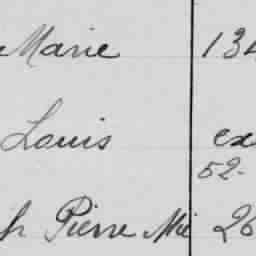 Marie 134
Louis ex
52-
Pierre Mie 26